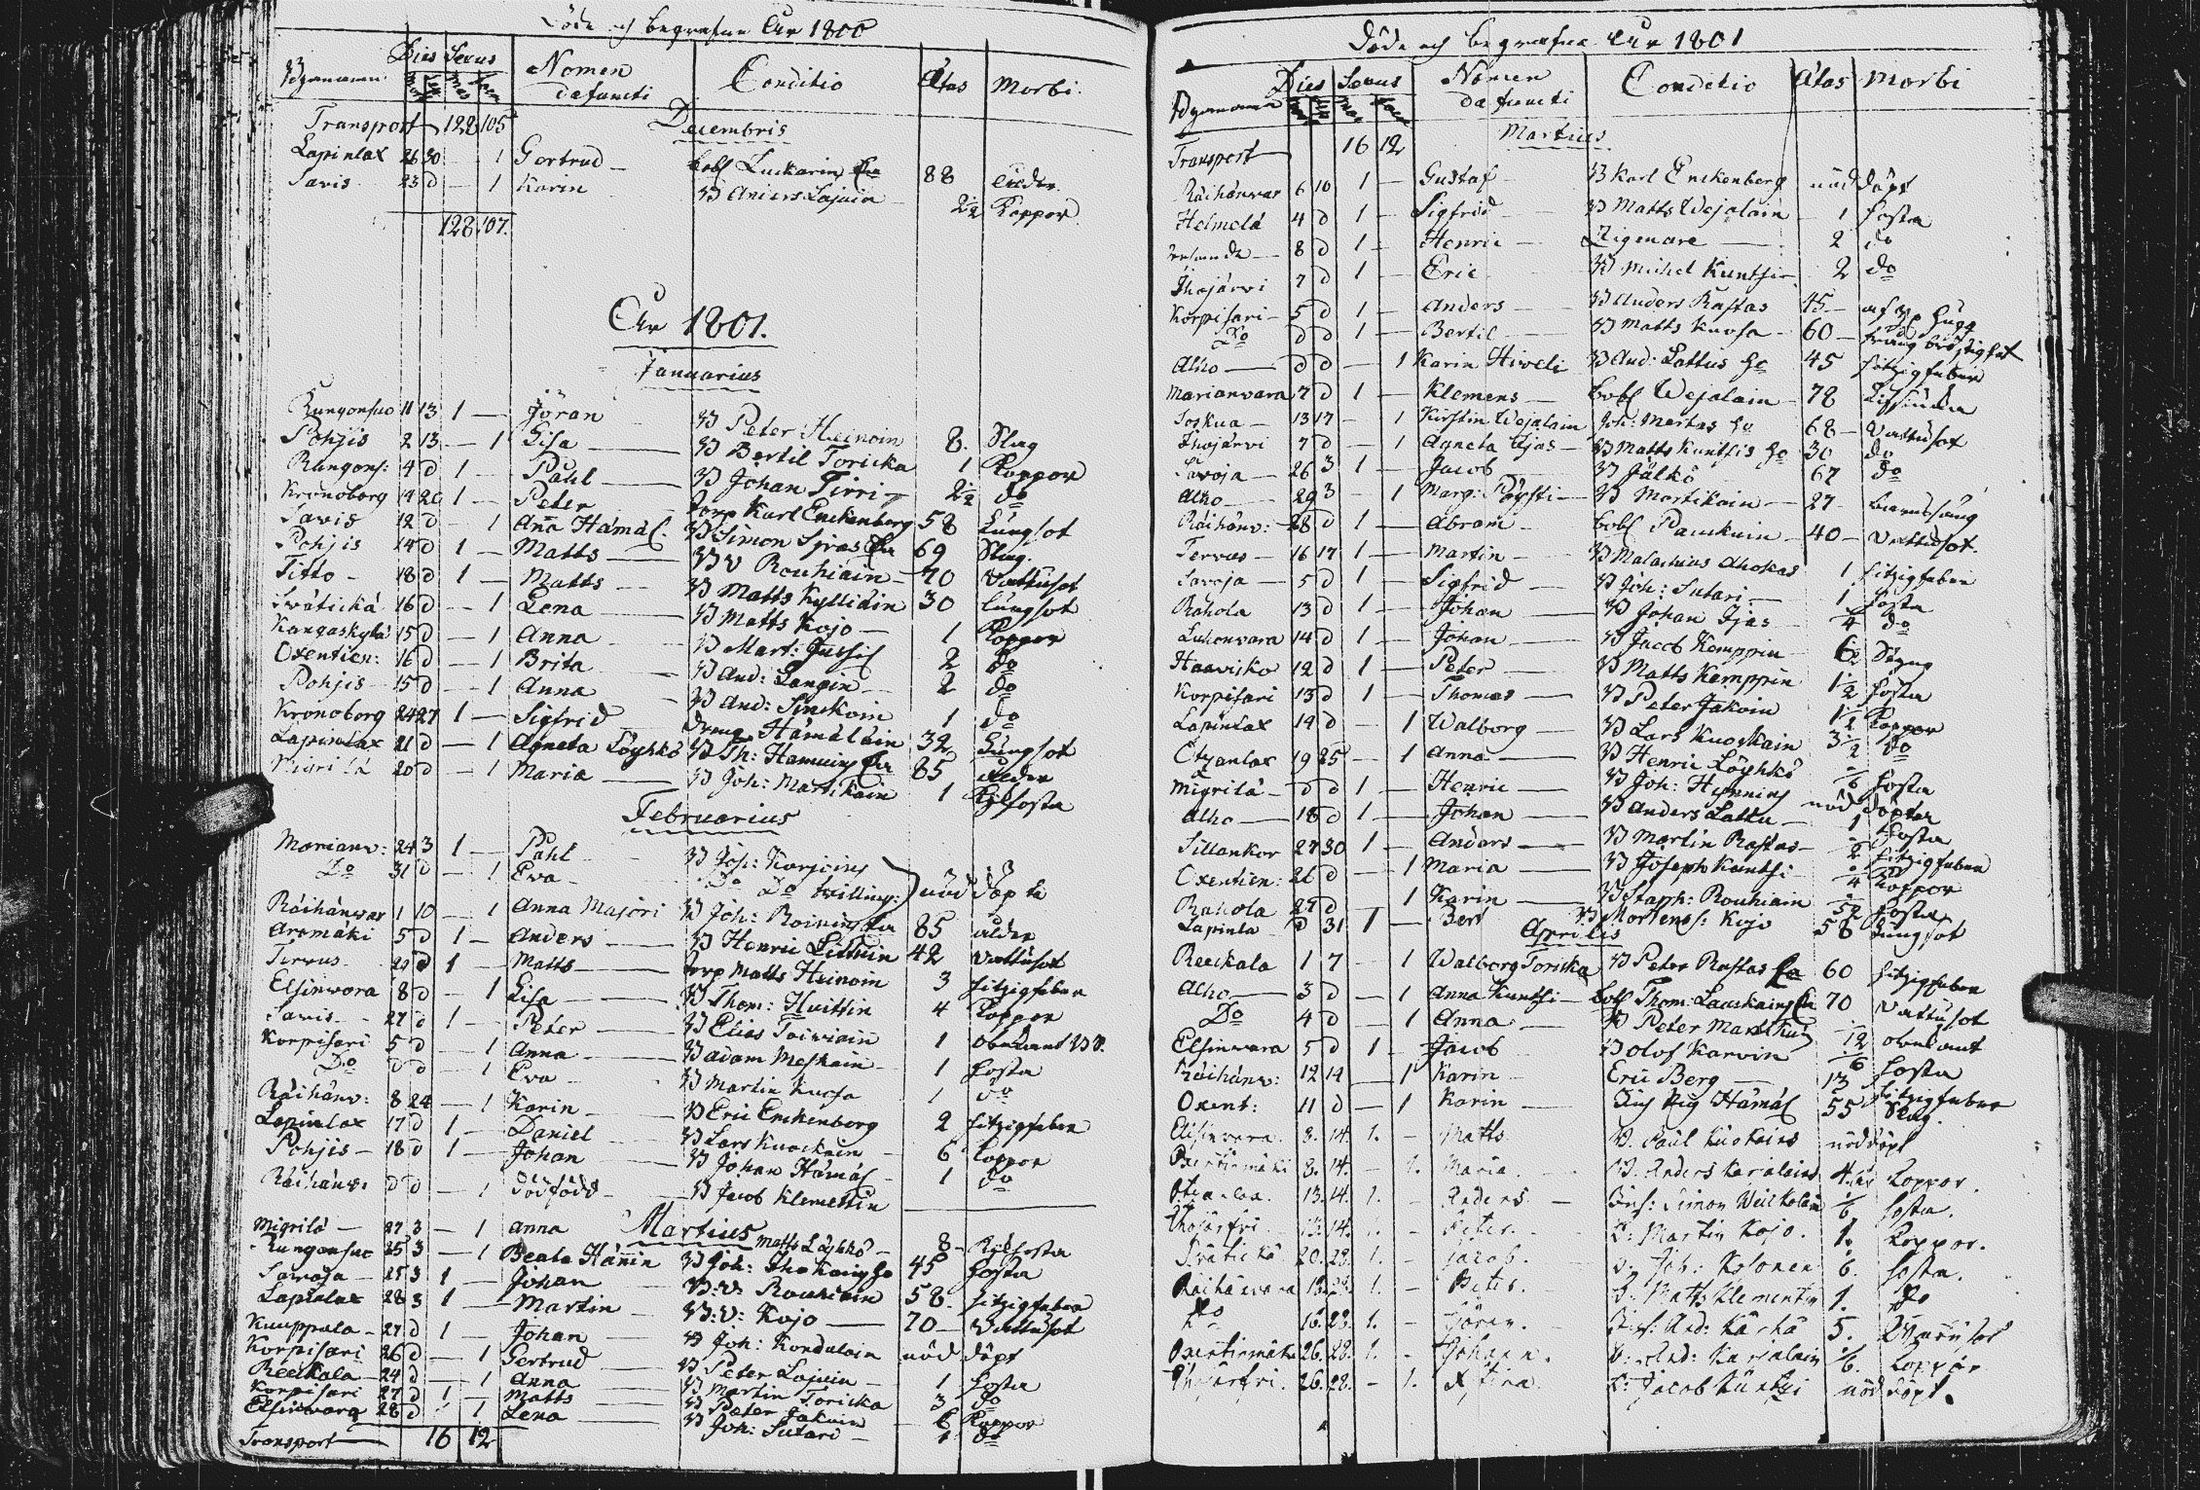 Döde och begrafne Åhr 1800
Byarnamn Dies Sexus Nomen defuncti Conditio Ætas Morbi
Transport 128 105 Decembris
Lapinlax 26 30 — 1 Gertrud — Luckarin 88 ålder
Savis 23 d — 1 Karin B Anders Lajuin 2½ Koppor
128 107.
Åhr 1801.
Januarius
Rungonsuo 11 13 1 — Jöran B Peter Heinoin 8. Slag
Pohjis 2 13 — 1 Lisa B Bertil Toricka 1 Koppor
Rungons: 4 d 1 — Påhl B Johan Tirri 2½ do
Kronoborg 19 20 1 — Peter Torp Karl Enckenberg 58 Lungsot
Savis 12 d — 1 Anna Hämäl. B Simon Ijäs 69 Slag.
Pohjis 14 d 1 — Matts B V Rouhiain 70 Vattusot
Titto 18 d 1 — Matts B Matts Kyllidin 30 Lungsot
Svätickä 16 d — 1 Lena B Matts Kojo 1 Koppor
Kangaskylä 15 d — 1 Anna B Mart: Jussis 2 do
Oxentien: 16 d — 1 Brita B And: Langin 2 do
Pohjis 15 d — 1 Anna B And: Sinckoin 1 do
Kronoborg 24 27 1 — Sigfrid Dreng Hämäläin 32 Lungsot
Lapinlax 21 d — 1 Agneta Löyhkö B Th: Hannuin 85 ålder
Migrilä 20 d — 1 Maria B Joh: Martikain 1 Kikhosta
Februarius
Marianv: 24 3 1 — Påhl B Joh: Karjoin
Do 31 d — 1 Eva Do Do tvilling: nöd döpte
Räihänvar 1 10 — 1 Anna Majori B Joh: Roinin 85 ålder
Aromäki 5 d 1 — Anders B Henric Littuin 42 Vattusot
Tervus 29 d 1 — Matts Torp Matts Heinoin 3 hitzigfeber
Elsinvara 8 d — 1 Lisa B Thom: Huittin 4 Koppor
Savis 27 d 1 — Peter B Elias Toiviain 1 obekant
Korpisari 5 d — 1 Anna B Adam Meskain 1 hosta
Do d d — 1 Eva B Martin Kuosa 1 do
Räihänv: 8 24 — 1 Karin B Eric Enckenberg 2 hitzigfeber
Lapinlax 17 d 1 Daniel B Lars Kuockain 6 Koppor
Pohjis 18 d 1 Johan B Johan Hämäl 1 do
Räihänv: d d — 1 Dödfödd B Jacob Klemettin
Martius
Migrilä 27 3 — 1 Anna Matts Löyhkö 8 Kikhosta
Rungonsuo 25 3 — 1 Beata Hännin B Joh: Ihakain 45 hosta
Savoja 25 3 1 — Johan B:V: Rouhiain 58 hitzigfeber
Lapinlax 28 3 1 — Martin B:V: Kojo 70 Vattusot
Kuuppala 27 d 1 — Johan B Joh: Kondulain nöd döpt
Korpisari 26 d — 1 Gertrud B Peter Lajuin 1 hosta
Reeckala 24 d — 1 Anna B Martin Toricka 3 do
Korpisari 27 d 1 — Matts B Peter Jakoin 6 Koppor
Elsinvara 28 d — 1 Lena B Joh: Sutari 1 do
Transport 16 12
Döde och begrafne Åhr 1801
Byarnamn Dies Sexus Nomen defuncti Conditio Ætas Morbi
Transport 16 12 Martius
Räihänvar 6 10 1 — Gustaf B Karl Enckenberg nöd döpt
Helmelä 4 d 1 — Sigfrid B Matts Wejalain 1 hosta
8 d 1 — Henric Zigenare 2 do
Ihojärvi 7 d 1 — Eric B Michel Kuntsi 2 do
Korpisari 5 d 1 — Anders B Anders Rastas 45
Do d d 1 — Bertil B Matts Kuosa 60 trång bröstighet
Alho d d — 1 Karin Hiveli B And: Lattus 45 hitzigfeber
Marianvara 7 d 1 — Klemens Wejalain 78
Soskua 13 17 — 1 Kirstin Wejalain Joh: Martas 68 Vattusot
Ihojärvi 7 d — 1 Agneta Ijäs B Matts Kuntsis 30 do
Savoja 26 3 1 Jacob B Jälkö 67 do
Alho 29 3 — 1 Marg: Pöysti B Martikain 27 barnssäng
Räihänv: 28 d 1 — Abram Pauckuin 40 Vattusot
Tervus 16 17 1 — Martin B Malachias Ahokas 1 hitzigfeber
Savoja 5 d 1 — Sigfrid B Joh: Sutari 1 hosta
Rahola 13 d 1 — Johan B Johan Ijäs ¼ do
Luhonvara 14 d 1 — Johan B Jacob Kemppin
Haaviko 12 d 1 — Peter B Matts Kemppin 1½ hosta
Korpisari 13 d 1 Thomas B Peter Jakoin 1½ Koppor
Lapinlax 19 d — 1 Walborg B Lars Kuockain 3½ do
Otzanlax 19 25 — 1 Anna B Henric Löyhkö hosta
Migrilä d d 1 — Henric B Joh: Hynnin nöd döpter
Alho 18 d 1 — Johan B Anders Lattu 1 hosta
Sillankor 27 30 1 — Anders B Martin Rastas hitzigfeber
Oxentien: 26 d — 1 Maria B Joseph Kuntsi Koppor
Rahola 27 d — 1 Karin B Staph: Rouhiain hosta
Lapinla d 31 1 — Bert B Mortens: Kojo 58 Lungsot
Aprilis
Reeckala 1 7 — 1 Walborg Toricka B Peter Rastas 60 hitzigfeber
Alho 3 d — 1 Anna Kuntsi Thom: Lauckain 70 Vattusot
Do 4 d — 1 Anna B Peter Martikain obekant
Elsinvara 5 d 1 Jacob B Olof Karvin hosta
Räihänv: 12 14 — 1 Karin Eric Berg 13 hitzigfeber
Oxent: 11 d — 1 Karin Hämäl 55 Slag.
Elisinvara. 8. 14. 1. — Matts B. Paul Kuokains nöddöpt
Oxentiemäki 8. 14. — 1. Maria B. Anders Karjalains Koppor.
Otzanlax. 13. 14. 1. — Anders Simon hosta.
Ihojärfvi 13. 14. 1. — Peter. B: Martin Kojo. 1. Koppor.
Svätickä 20. 23. 1. — Jacob. B: Joh: Kolonen 6. hosta.
Räihänvara 13. 23. 1. — Peter. B. Matts Klementin 1. do
Do 16. 23. 1. — Jören. And: Kärkä 5.
Oxentiemäki 26. 28. 1. — Johann. B: And: Karjalain Koppor
Ihojärfvi. 26. 28. — 1. Xstina. B: Jacob Kuntsi nöd döpt.